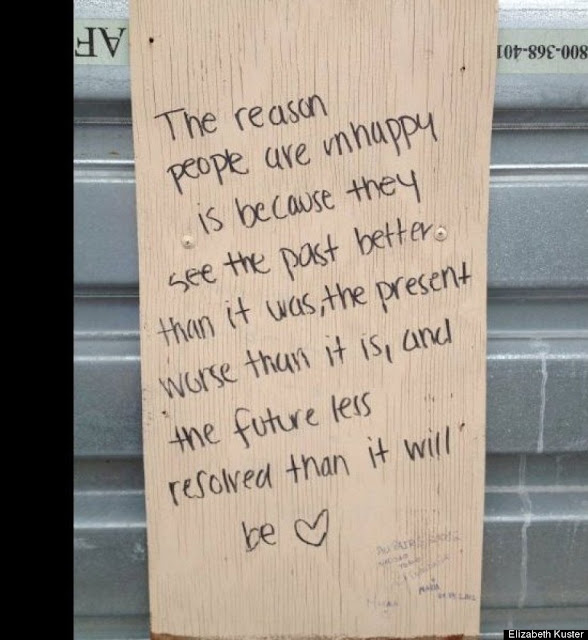 AF
800-368-401
The reason
people are unhappy
is because they
see the past better
than it was, the present
worse than it is, and
the future less
resolved than it will
be ♡
Elizabeth Kuster